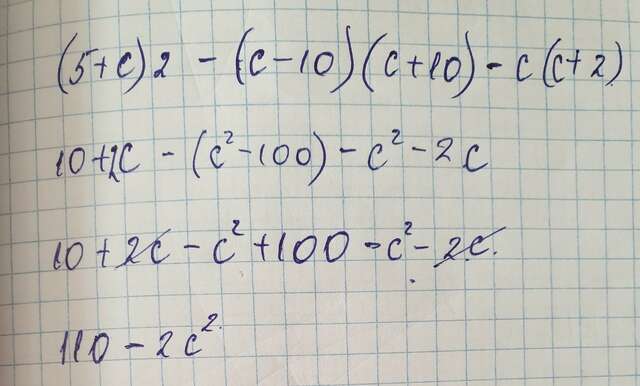 (5+c)2 - (c-10)(c+10) - c(c+2)
10+2c - (c²-100) - c² - 2c
10+2c - c²+100 - c² - 2c.
110 - 2c²